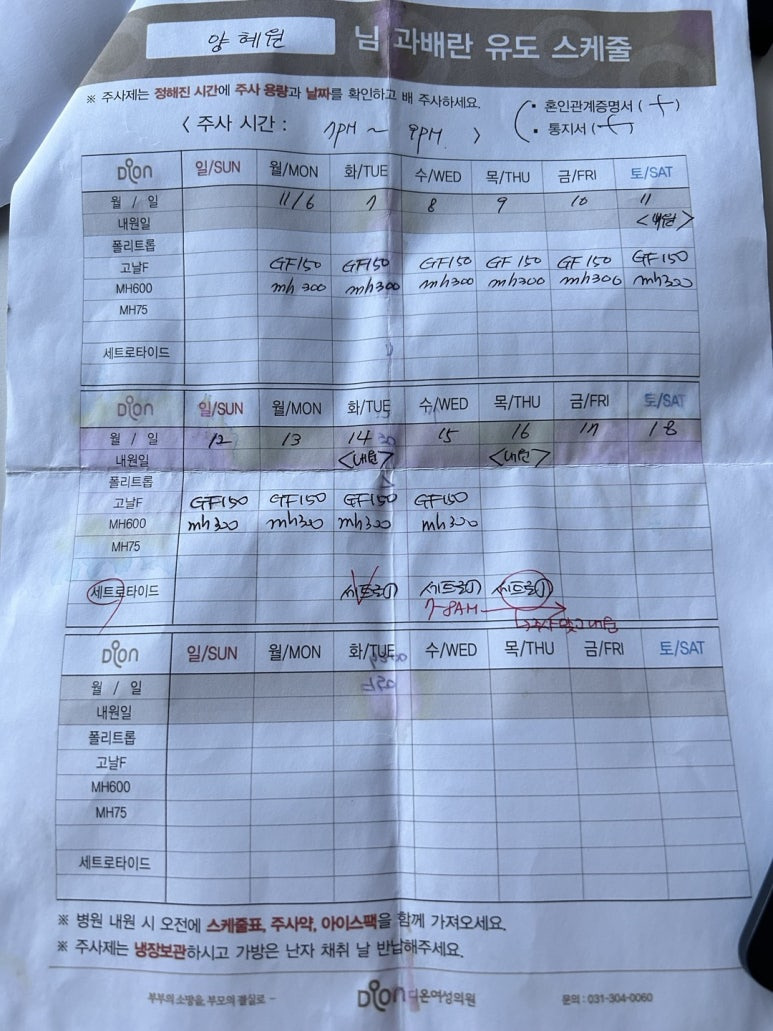 양혜원 님 과배란 유도 스케줄
※ 주사제는 정해진 시간에 주사 용량과 날짜를 확인하고 배 주사하세요.
• 혼인관계증명서 ( + )
• 통지서 ( + )
< 주사 시간 : 7PM ~ 9PM >
Dion 일/SUN 월/MON 화/TUE 수/WED 목/THU 금/FRI 토/SAT
월 / 일 11/6 7 8 9 10 11
내원일 <내원>
폴리트롭
고날F GF150 GF150 GF150 GF150 GF150 GF150
MH600 mh300 mh300 mh300 mh300 mh300 mh300
MH75
세트로타이드
Dion 일/SUN 월/MON 화/TUE 수/WED 목/THU 금/FRI 토/SAT
월 / 일 12 13 14 15 16 17 18
내원일 <내원> <내원>
폴리트롭
고날F GF150 GF150 GF150 GF150
MH600 mh300 mh300 mh300 mh300
MH75
세트로타이드 세트로① 세트로① 세트로①
7-8AM
Dion 일/SUN 월/MON 화/TUE 수/WED 목/THU 금/FRI 토/SAT
월 / 일
내원일
폴리트롭
고날F
MH600
MH75
세트로타이드
※ 병원 내원 시 오전에 스케줄표, 주사약, 아이스팩을 함께 가져오세요.
※ 주사제는 냉장보관하시고 가방은 난자 채취 날 반납해주세요.
부부의 소망을, 부모의 결실로 - Dion 디온여성의원 문의 : 031-304-0060